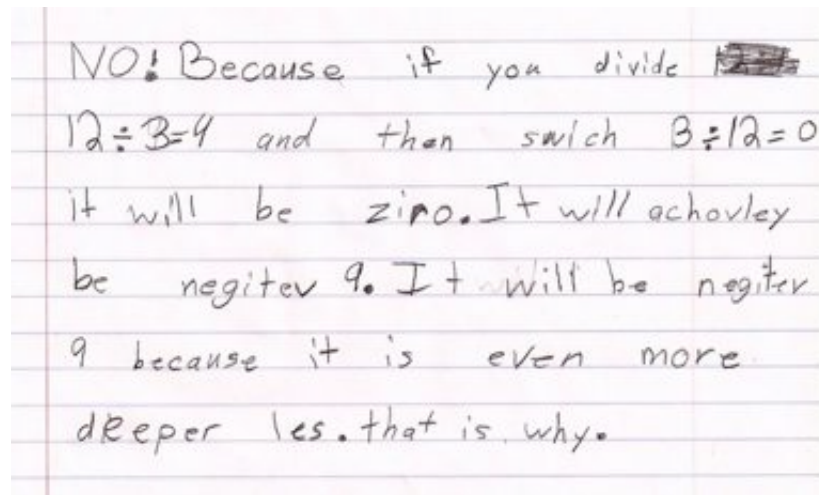 NO! Because if you divide
12÷3=4 and then swich 3÷12=0
it will be ziro. It will achovley
be negitev 9. It will be negitev
9 because it is even more
deeper les. that is why.